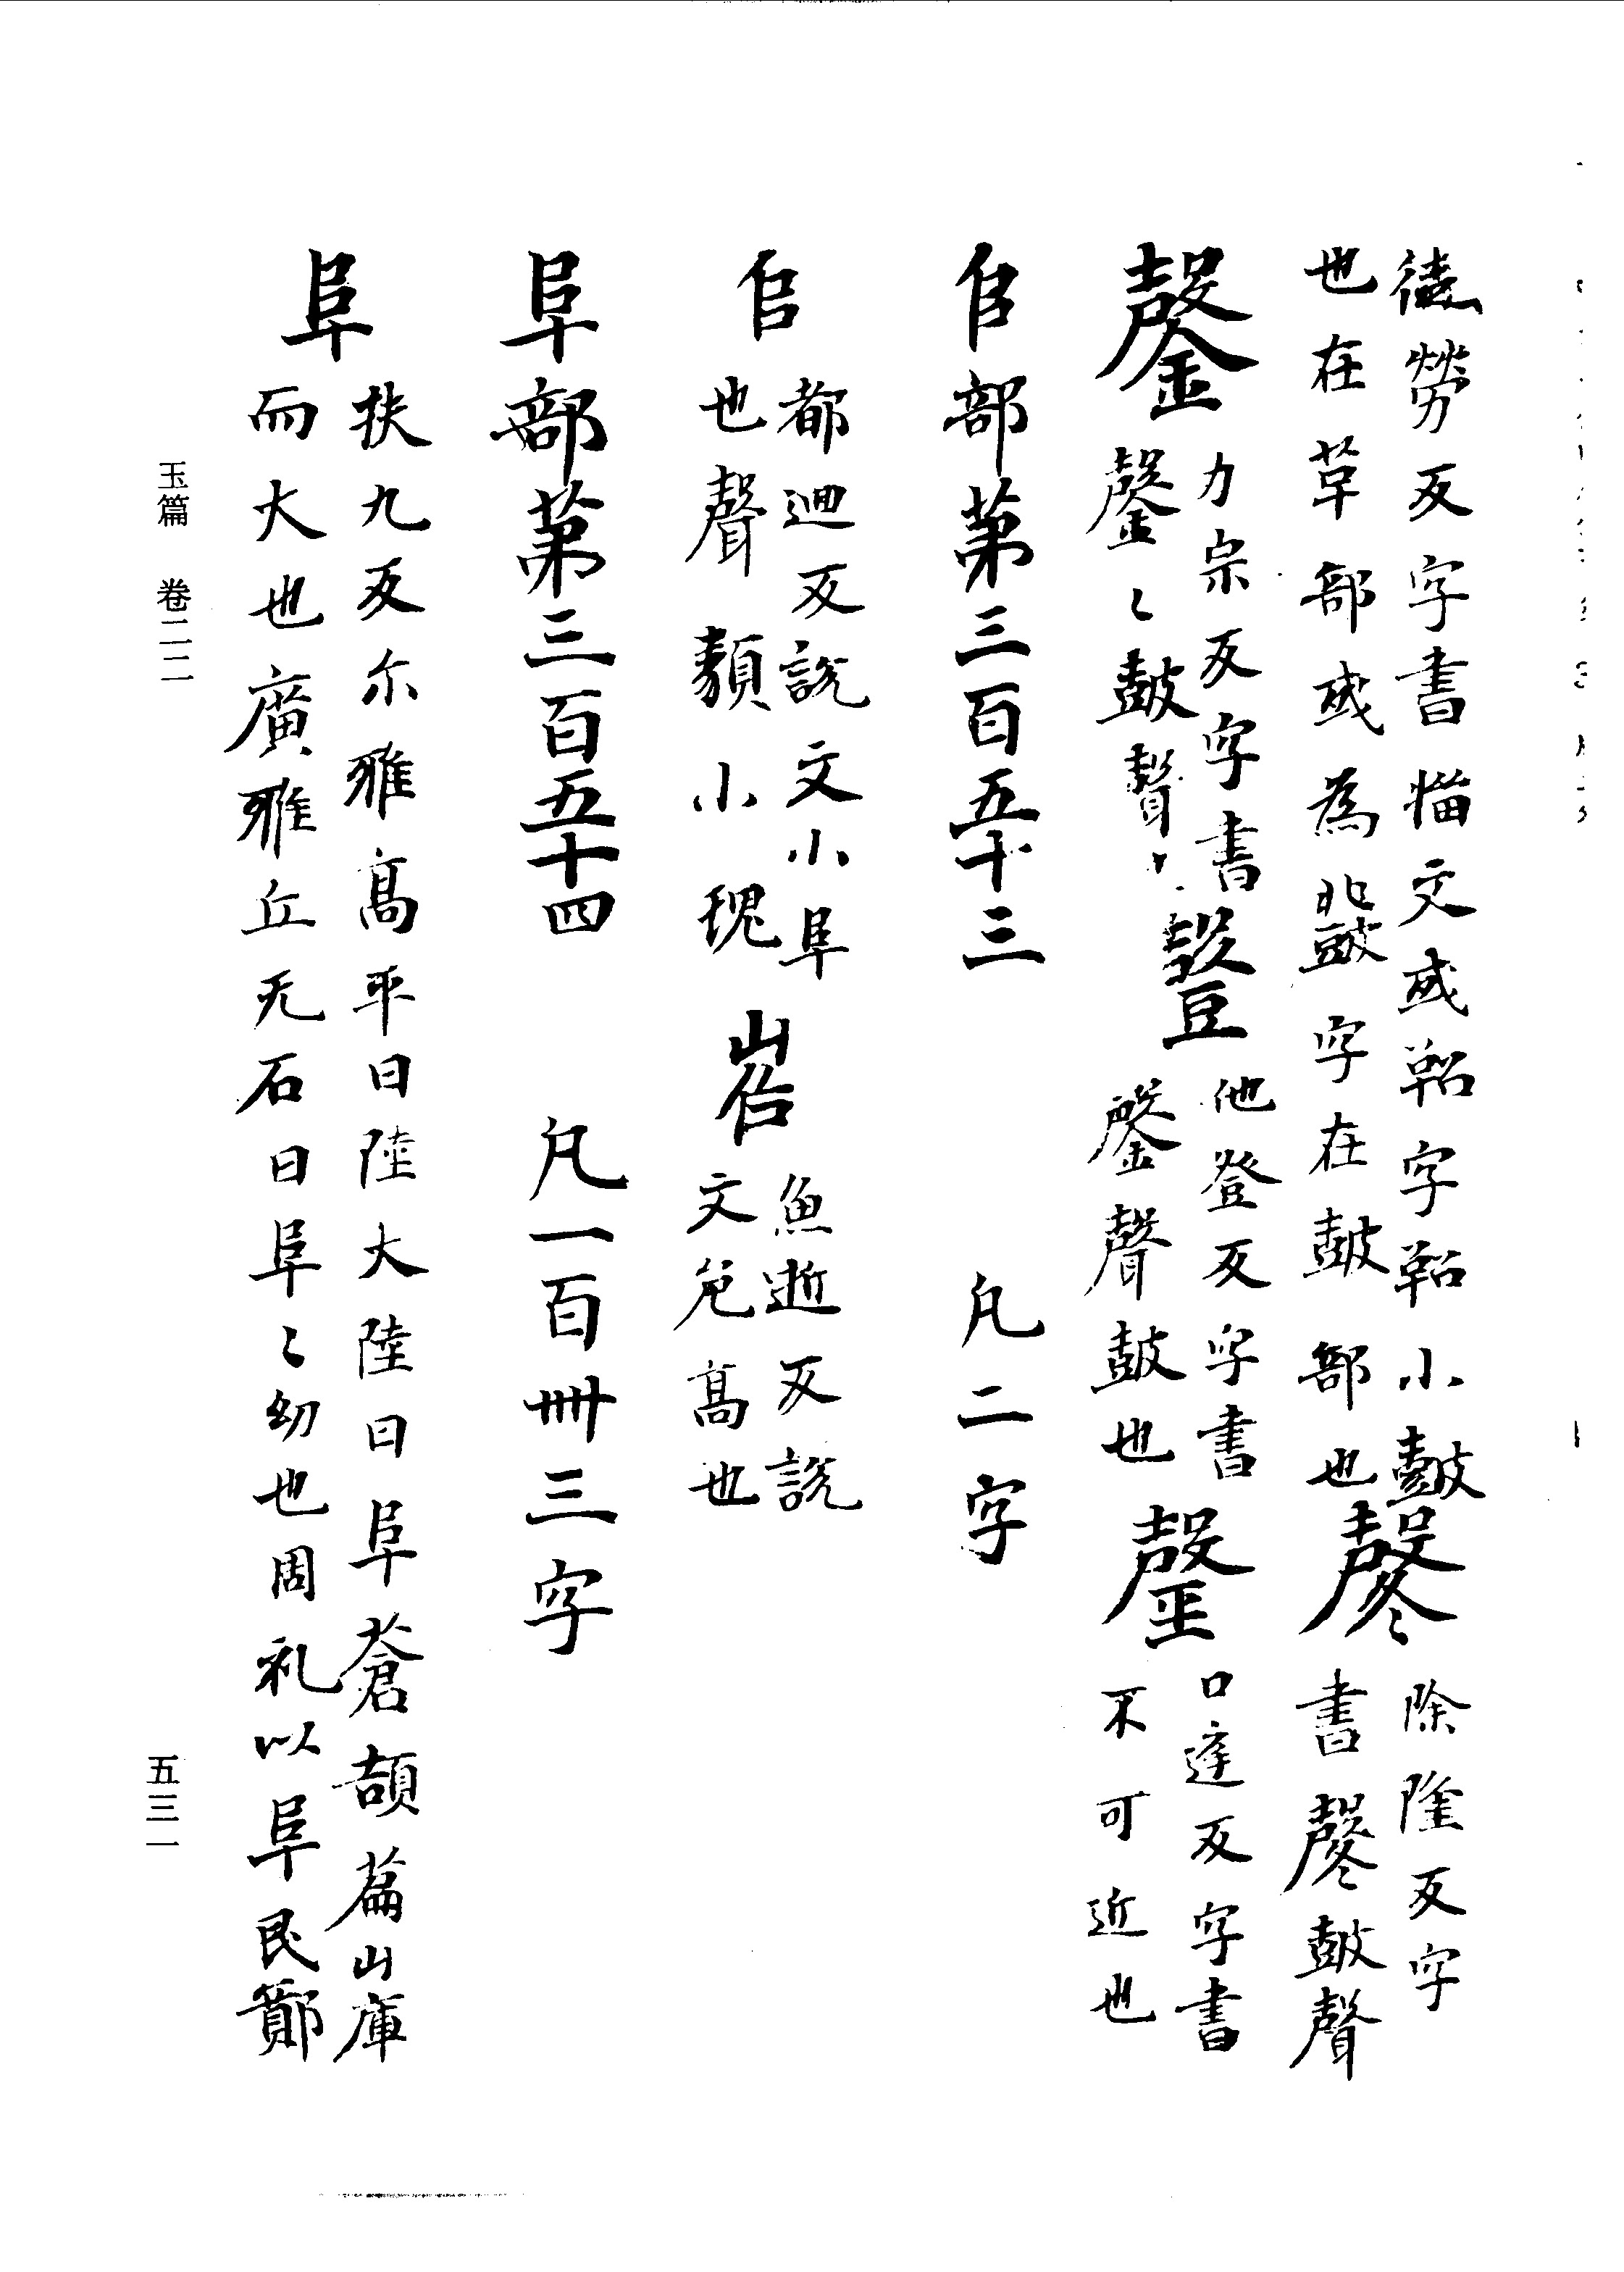 徒勞反字書猫文或鞀字鞀小鼓
也在革部或為鼗字在鼓部也
除隆反字
書鼕鼓聲
力宗反字書
鼕〻鼓聲
他登反字書
聲鼓也
口達反字書
不可近也
𠂤部第三百五十三 凡二字
𠂤
都迴反說文小阜
也聲類小塊
魚逝反說
文危高也
阜部第三百五十四 凡一百卌三字
阜
扶九反尓雅高平曰陸大陸曰阜蒼頡篇山庫
而大也廣雅丘无石曰阜〻幼也周礼以阜民鄭
玉篇 卷二二
五三一